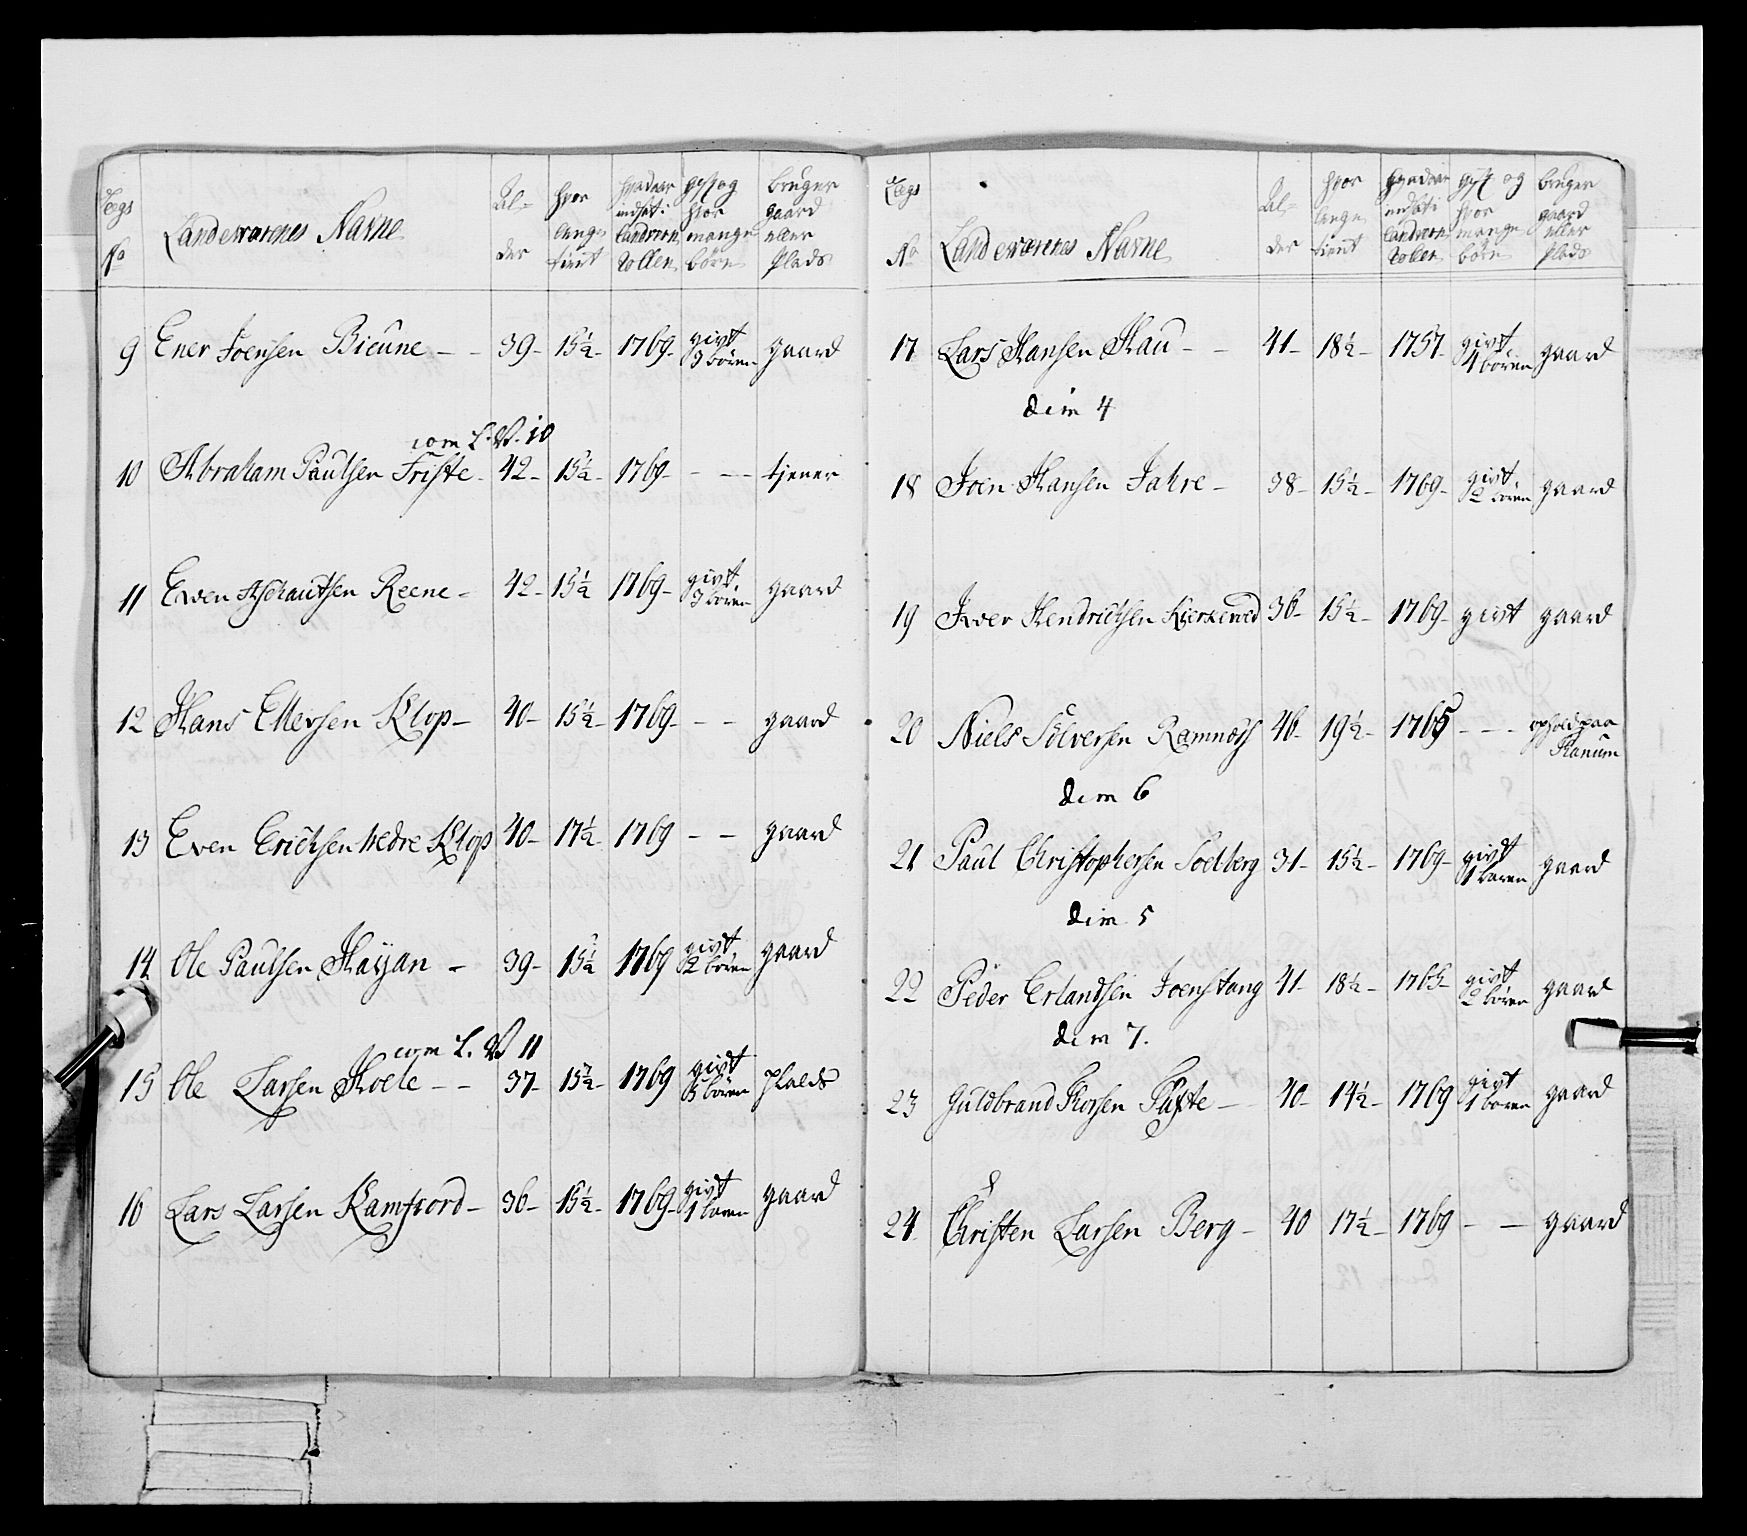 Lægs No | Landeværenes Navne | Al-der | hvor længe tient | hvadaar indsat i Landværn Rollen | gift og hvor mange børn | bruger gaard eller Plads
9 Ener Joensen Bieune – – 39– 15½– 1769– givt 3 børen gaard
com L. V. 10
10 Abraham Paulsen Friste – 42– 15½– 1769– – – – tjener
11 Even Aschautsen Reene – 42– 15½ 1769– givt 3 børen gaard
12 Hans Ellevsen Klop – 40– 15½– 1769– – – gaard
13 Even Erichsen nedre Klop 40– 17½ 1769 – – gaard
14 Ole Paulsen Hayan – 39– 15½ 1769 givt 2 børen gaard
com L. V 11
15 Ole Larsen Hoele – – 37– 15½– 1769 givt 5 børen plads
16 Lars Larsen Ramfiord – 36– 15½– 1769– givt 1 baren gaard
Lægs No | Landeværenes Navne | Al-der | hvor længe tient | hvadaar indsat i Landværn Rollen | gift og hvor mange børn | bruger gaard eller Plads
17 Lars Hansen Hau – – 41– 18½– 1757 givt 4 børen gaard
dim 4
18 Joen Hansen Jahre – 38– 15½– 1769– givt 2 børen gaard
19 Iver Hendrichsen Kierkeved 36– 15½– 1769– givt gaard
20 Niels Sølversen Ramnæs 46– 19½– 1765 – – – opholdpaa Hanum
dim 6
21 Paul Christophersen Soelberg 31– 15½– 1769– givt 1 baren gaard
dim 5
22 Peder Erlandsen Joenstang 41– 18½– 1765– givt 2 børen gaard
dim 7.
23 Guldbrand Thorsen Pufte – 40– 14½– 1769 givt 1 baren gaard
24 Christen Larsen Berg – 40 17½– 1769 – – gaard